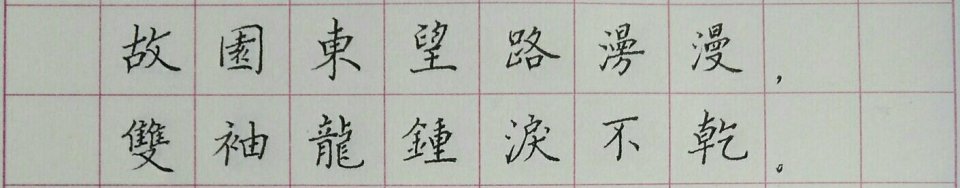 故園東望路漫漫，
雙袖龍鍾淚不乾。